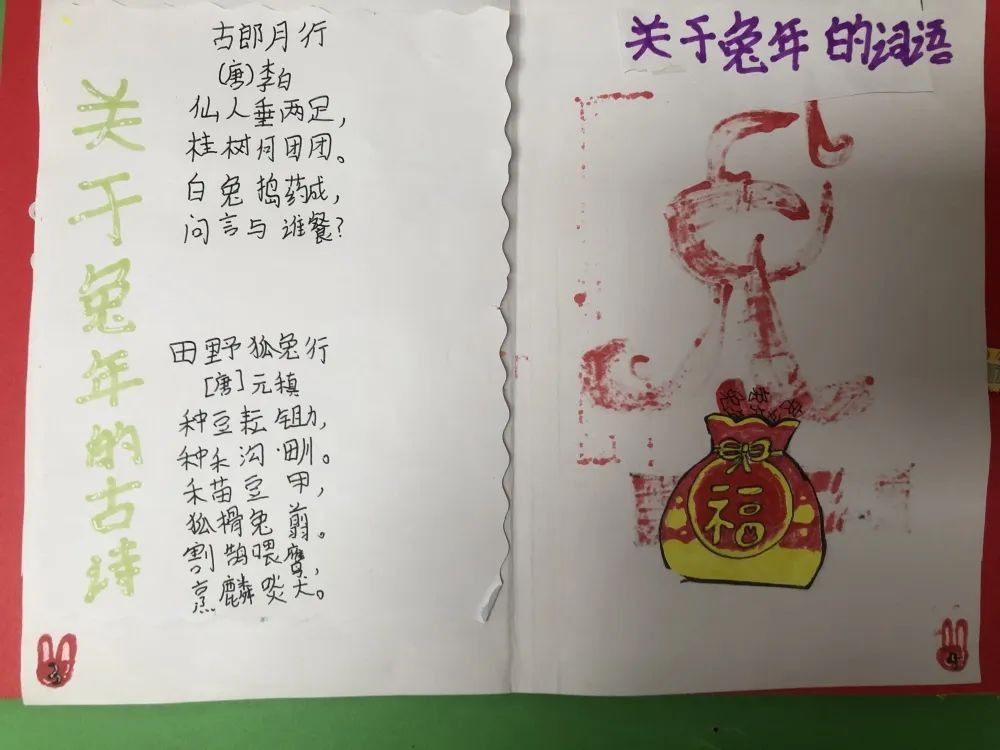 关于兔年的古诗
古郎月行
(唐)李白
仙人垂两足,
桂树月团团。
白兔捣药成,
问言与谁餐?
田野狐兔行
[唐]元稹
种豆耘锄,
种禾沟甽。
禾苗豆甲,
狐榾兔翦。
割鹄喂鹰,
烹麟啖犬。
3
关于兔年的词语
福
4